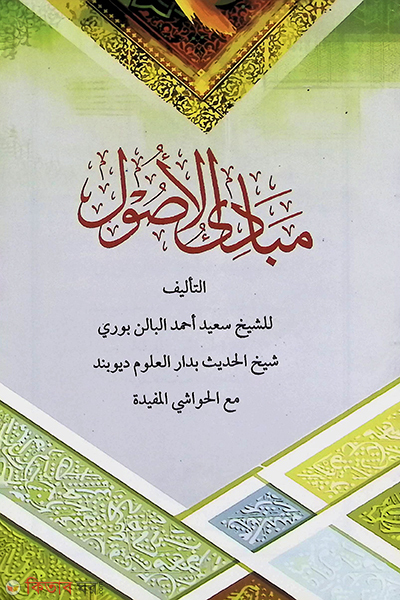 مَبَادِئُ الأُصُول
التأليف
للشيخ سعيد أحمد البالن بوري
شيخ الحديث بدار العلوم ديوبند
مع الحواشي المفيدة